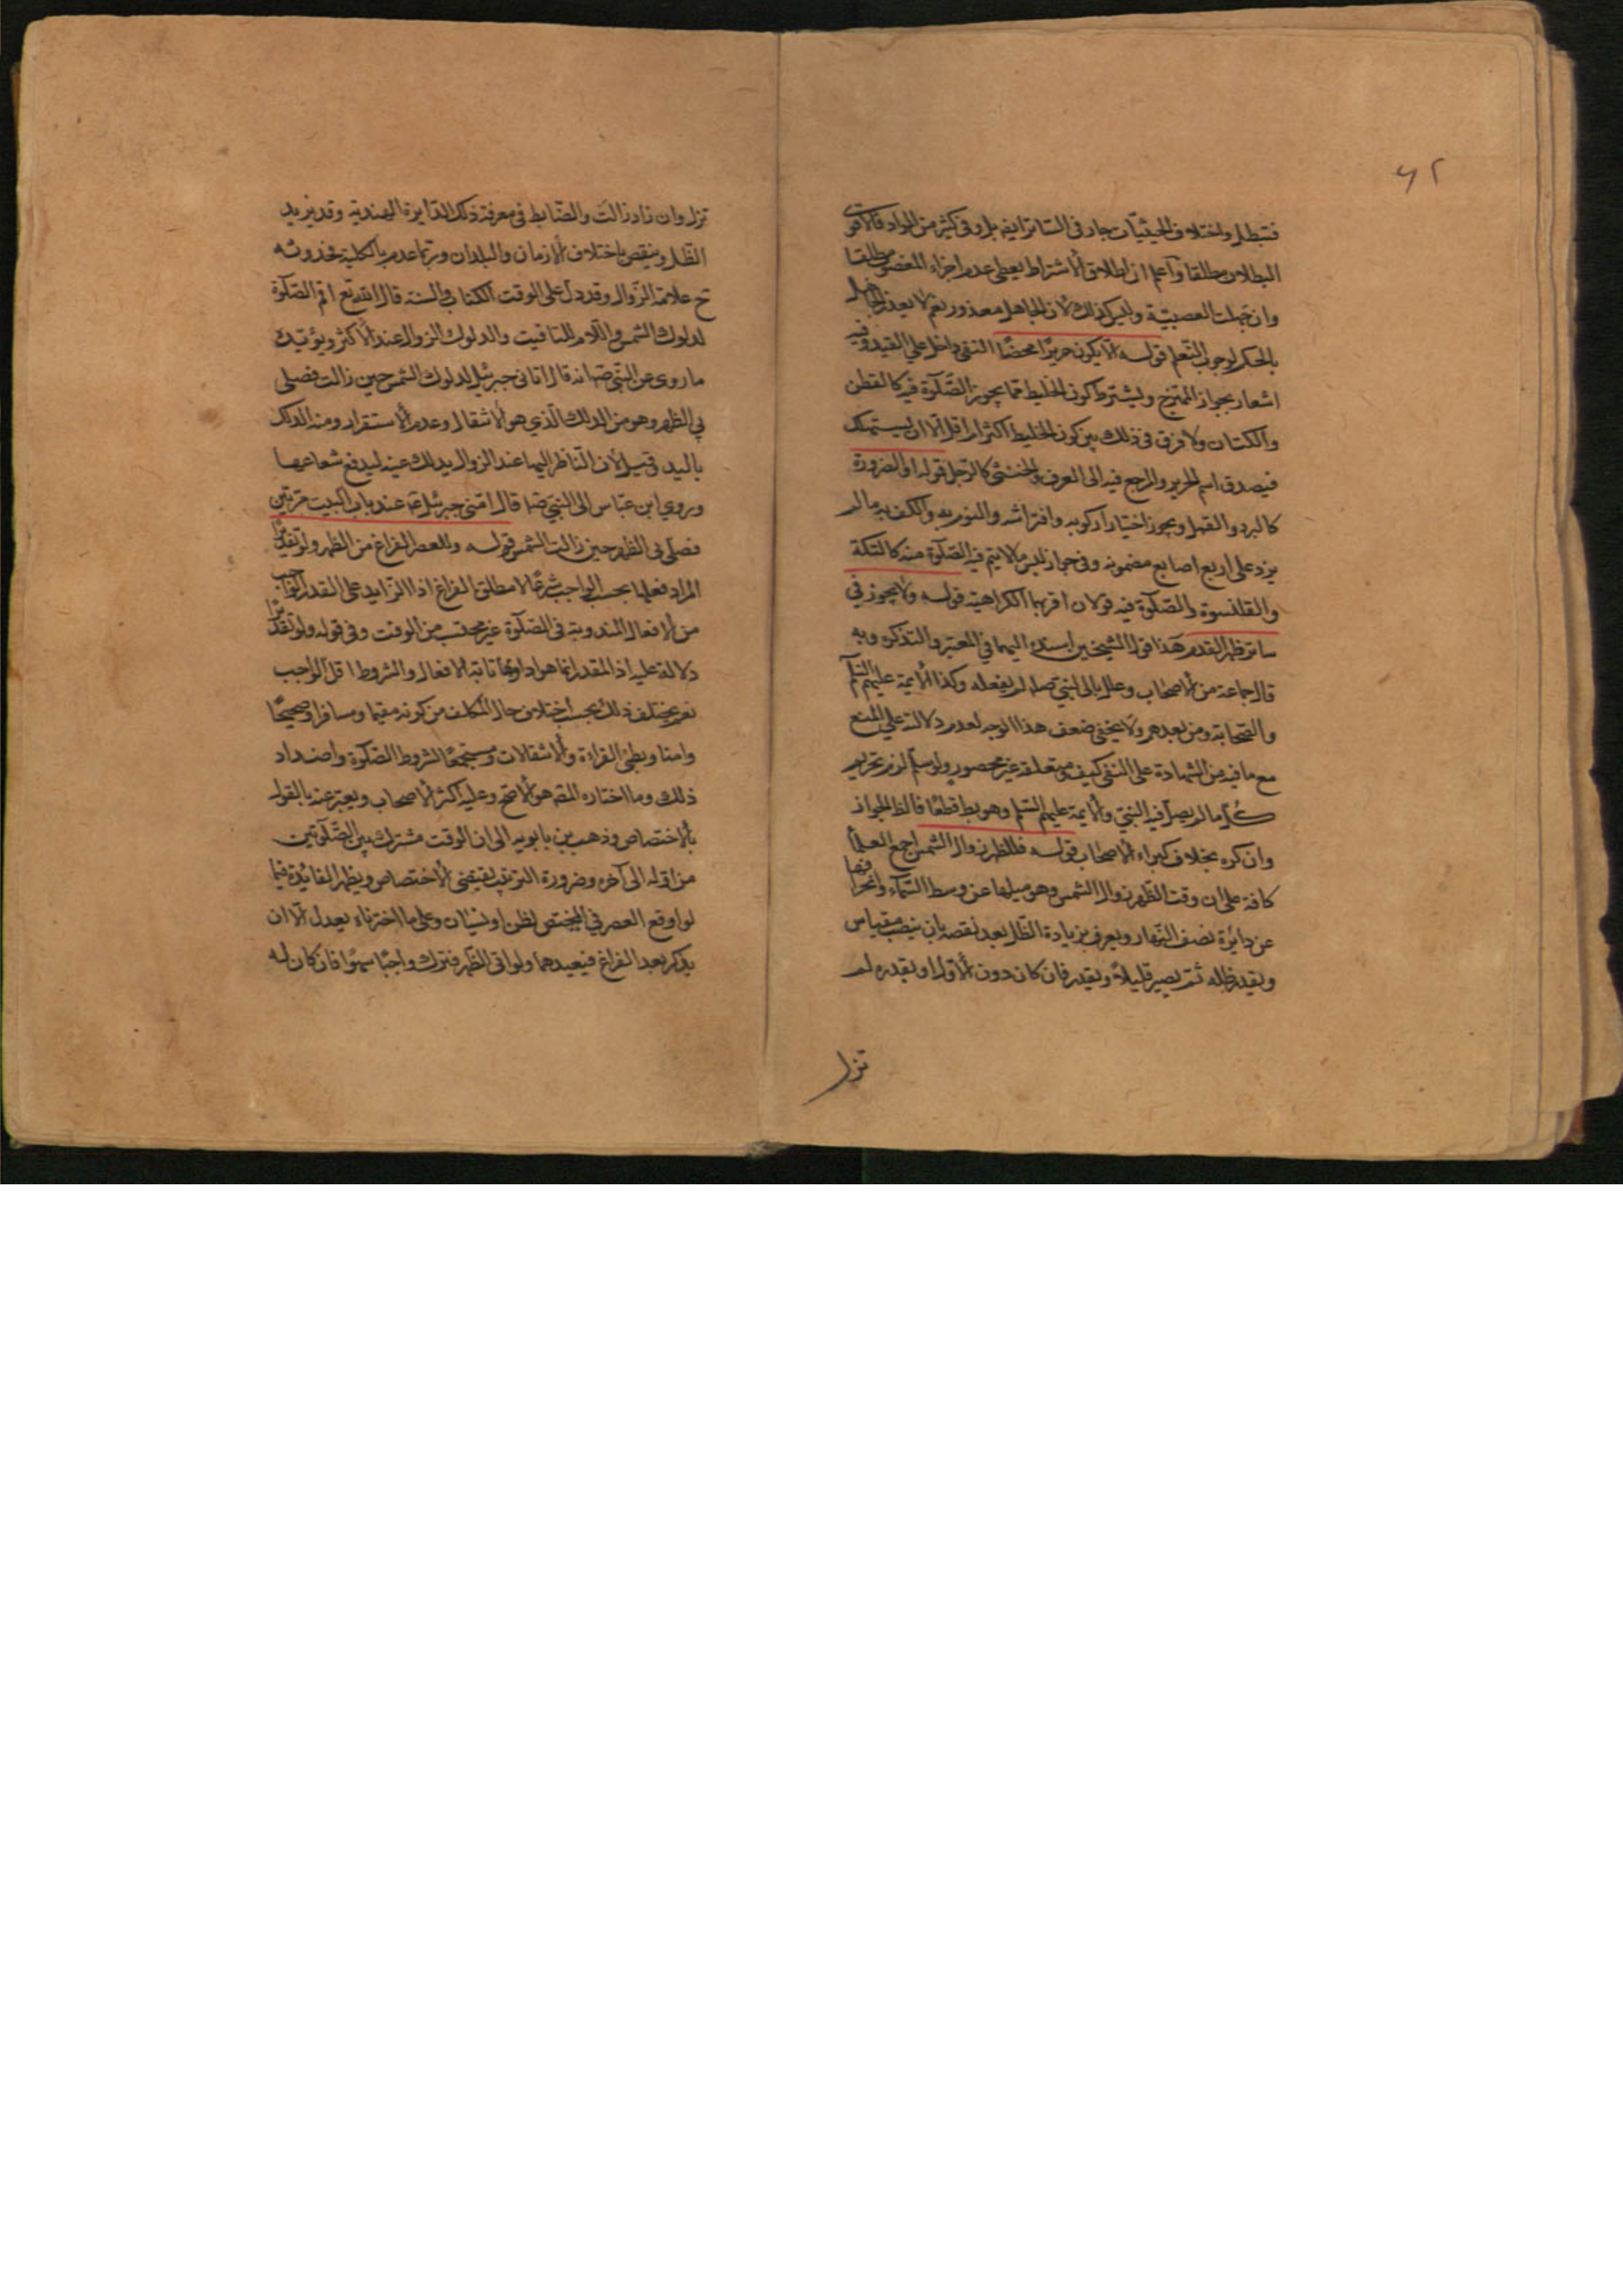 ٦٢
فتبطل واختلاف الحيثيات جار في الساتر ايضا بل وفي كثير من المواد فالاقوى
البطلان مطلقا واعلم ان اطلاق الاشتراط يعطي عدم اجزاء المغصوب مطلقا
وان جهلت العصبية وليس كذلك لان الجاهل معذور نعم لا يعذر الجاهل
بالحكم لوجوب التعلم قوله الا يكون حريرا محضا النفي داخل على القيد وفيه
اشعار بجواز الممتزج ويشترط كون الخليط مما يجوز الصلوة فيه كالقطن
والكتان ولا فرق في ذلك بين كون الخليط اكثر ام اقل الا ان يستهلك
فيصدق اسم الحرير والمرجع فيه الى العرف والخنثى كالرجل قوله او لضرورة
كالبرد والقمل ويجوز اختيارا ركوبه وافتراشه والتوزير به والكف به ما لم
يزد على اربع اصابع مضمومة وفي جواز لبس ما لا يتم فيه الصلوة منه كالتكة
والقلنسوة والصلوة فيه قولان اقربهما الكراهية قوله ولا يجوز في
ساتر ظهر القدم هذا قول الشيخين اسنده اليهما في المعتبر والتذكره وبه
قال جماعة من الاصحاب وعلل بان النبي صلى لم يفعله وكذا الايمة عليهم السلام
والصحابة ومن بعدهم ولا يخفى ضعف هذا الوجه لعدم دلالته على المنع
مع ما فيه من الشهادة على النفي كيف ومتعلقه غير محصور ولو سلم لزم تحريم
كل ما لم يصل فيه النبي والايمة عليهم السلم وهو بط قطعا فالظ الجواز
وان كره بخلاف كبراء الاصحاب قوله فللظهر زوال الشمس اجمع العلماء
كافة على ان وقت الظهر زوال الشمس وهو ميلها عن وسط السماء وانحرافها
عن دايرة نصف النهار ويعرف بزيادة الظل بعد نقصه بان ينصب مقياس
ويقدر ظله ثم يصبر قليلا ويقدر فان كان دون الاول او بقدره لم
تزل
تزل وان زاد زالت والضابط في معرفة ذلك الدايرة الهندية وقد يزيد
الظل وينقص باختلاف الازمان والبلدان وربما عدم بالكلية فحدوثه
ح علامة الزوال وقد دل على الوقت الكتاب والسنة قال الله تع اقم الصلوة
لدلوك الشمس واللام للتاقيت والدلوك الزوال عند الاكثر ويؤيده
ما روي عن النبي ص انه قال اتاني جبرئيل لدلوك الشمس حين زالت فصلى
بي الظهر وهو من الدلك الذي هو الانتقال وعدم الاستقرار ومنه الدلك
باليد وقيل لان الناظر اليها عند الزوال يدلك عينه ليدفع شعاعها
وروي ابن عباس الى النبي ص قال امني جبرئيل ع عند باب البيت مرتين
فصلى بي الظهر حين زالت الشمس قوله وللعصر الفراغ من الظهر ولو تقديرا
المراد فعلها بحسب الواجب شرعا لا مطلق الفراغ اذ الزايد على القدر الواجب
من الافعال المندوبة في الصلوة غير محتسب من الوقت وفي قوله ولو تقديرا
دلالة عليه اذ المقدر انما هو الافعال والشروط اقل الواجب
نعم يختلف ذلك بحسب اختلاف حال المكلف من كونه مقيما ومسافرا وصحيحا
وامنا وبطئ القراءة والانتقالات ومستجمعا لشروط الصلوة واضداد
ذلك وما اختاره المص هو الاصح وعليه اكثر الاصحاب ويعبر عنه بالقول
بالاختصاص وذهب بن بابويه الى ان الوقت مشترك بين الصلوتين
من اوله الى آخره وضرورة الترتيب يقتضي الاختصاص ويظهر الفائدة فيما
لو اوقع العصر في المختص لظن او نسيان وعلى ما اخترناه يعدل الا ان
يذكر بعد الفراغ فيعيدهما ولو اتى الظهر فترك واجبا سهوا فان كان له